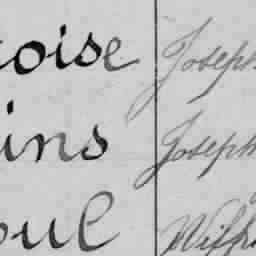 oise Joseph
ins Joseph
oul Wilf